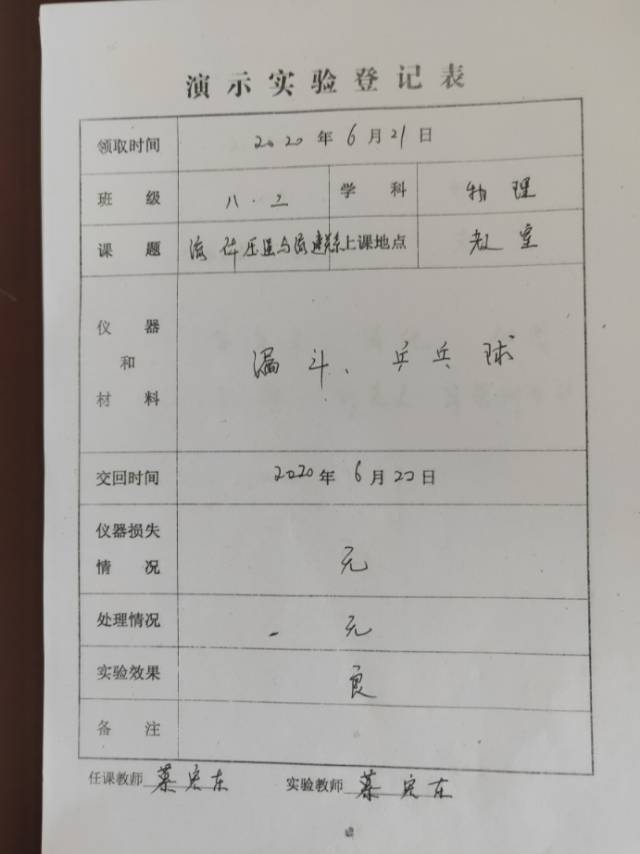 演示实验登记表
领取时间 2020年6月21日
班级 八.二 学科 物理
课题 流体压强与流速关系 上课地点 教室
仪器
和 漏斗、乒乓球
材料
交回时间 2020年6月22日
仪器损失
情况 无
处理情况 无
实验效果 良
备注
任课教师 蔡宏东 实验教师 蔡宏东